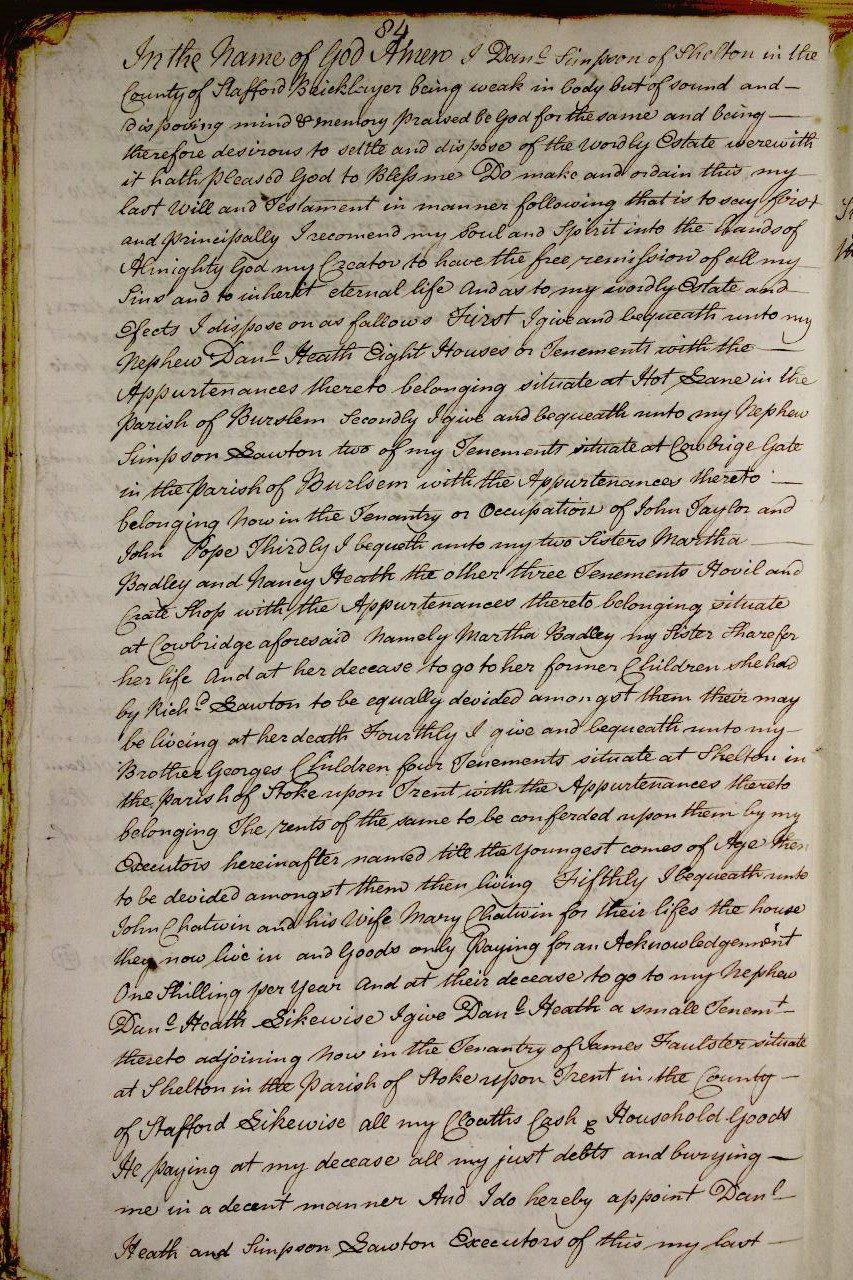 84
In the Name of God Amen I Danl Simpson of Shelton in the
County of Stafford Bricklayer being weak in body but of sound and
disposing mind & memory praised be God for the same and being
therefore desirous to settle and dispose of the wordly Estate werewith
it hath pleased God to Bless me Do make and ordain this my
last Will and Testament in manner following that is to say first
and principally I recomend my Soul and Spirit into the hands of
Almighty God my Creator to have the free remission of all my
Sins and to inherit eternal life And as to my wordly Estate and
Efects I dispose on as fallows First I give and bequeath unto my
Nephew Danl Heath Eight Houses or Tenements with the
Appurtenances thereto belonging situate at Hot Lane in the
Parish of Burslem Secondly I give and bequeath unto my Nephew
Simpson Lawton two of my Tenements situate at Cowbrige Gate
in the parish of Burlsem with the Appurtenances thereto
belonging Now in the Tenantry or Occupation of John Taylor and
John Pope Thirdly I bequeth unto my two Sisters Martha
Badley and Nancy Heath the other three Tenements Hovil and
Crate Shop with the Appurtenances thereto belonging situate
at Cowbridge aforesaid Namely Martha Badley my Sister Share for
her life And at her decease to go to her former Children she had
by Richd Lawton to be equally decided amongst them their may
be liveing at her death Fourthly I give and bequeath unto my
Brother Georges Children four Tenements situate at Shelton in
the parish of Stoke upon Trent with the Appurtenances thereto
belonging The rents of the same to be conferded upon them by my
Executors hereinafter named till the youngest comes of Age then
to be devided amongst them then living Fifthly I bequeath unto
John Chatwin and his Wife Mary Chatwin for their lifes the house
they now live in and Goods only Paying for an Acknowledgement
One Shilling per Year And at their decease to go to my Nephew
Danl Heath Likewise I give Danl Heath a small Tenemt
thereto adjoining Now in the Tenantry of James Faulster situate
at Shelton in the parish of Stoke upon Trent in the County
of Stafford Likewise all my Cloaths Cash & Household Goods
He paying at my decease all my just debts and burying
me in a decent manner And I do hereby appoint Danl
Heath and Simpson Lawton Executors of this my last